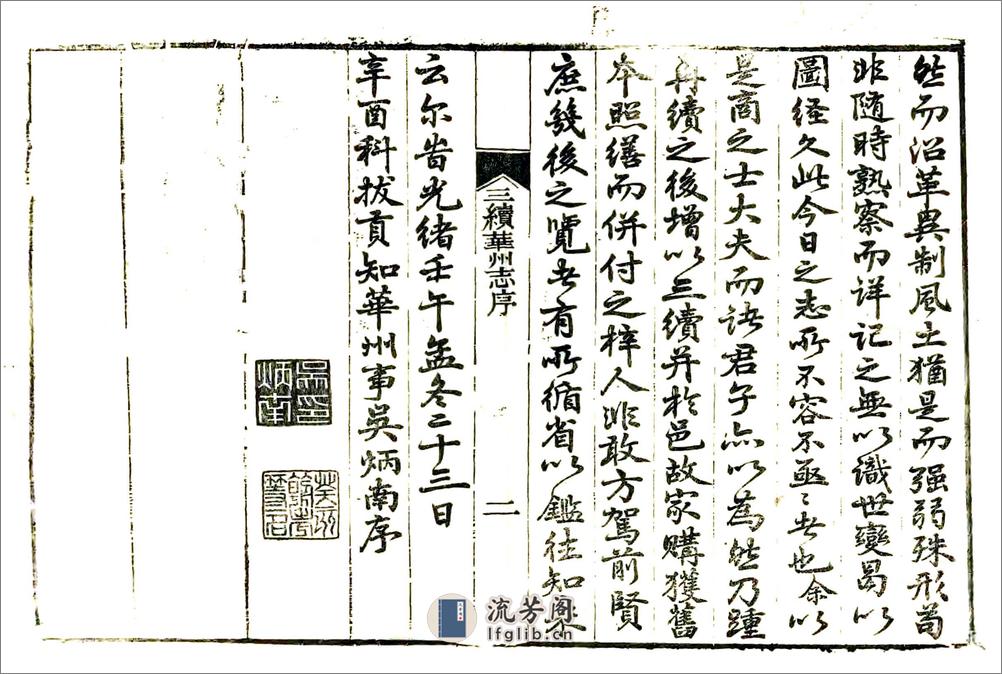 然而沿革異制風土猶是而强弱殊形茍
非随時熟察而详记之無以識世變曷以
圖经久此今日之志所不容不亟亟者也余以
是商之士大夫而诸君子亦以為然乃踵
再續之後增以三續并於邑故家購獲舊
本照繕而併付之梓人非敢方駕前賢
庶幾後之覽者有所循省以鑑往知来
三續華州志序
二
云尔旹光緒壬午孟冬二十三日
辛酉科拔貢知華州事吳炳南序
吳炳南
流芳阁
lfglib.cn